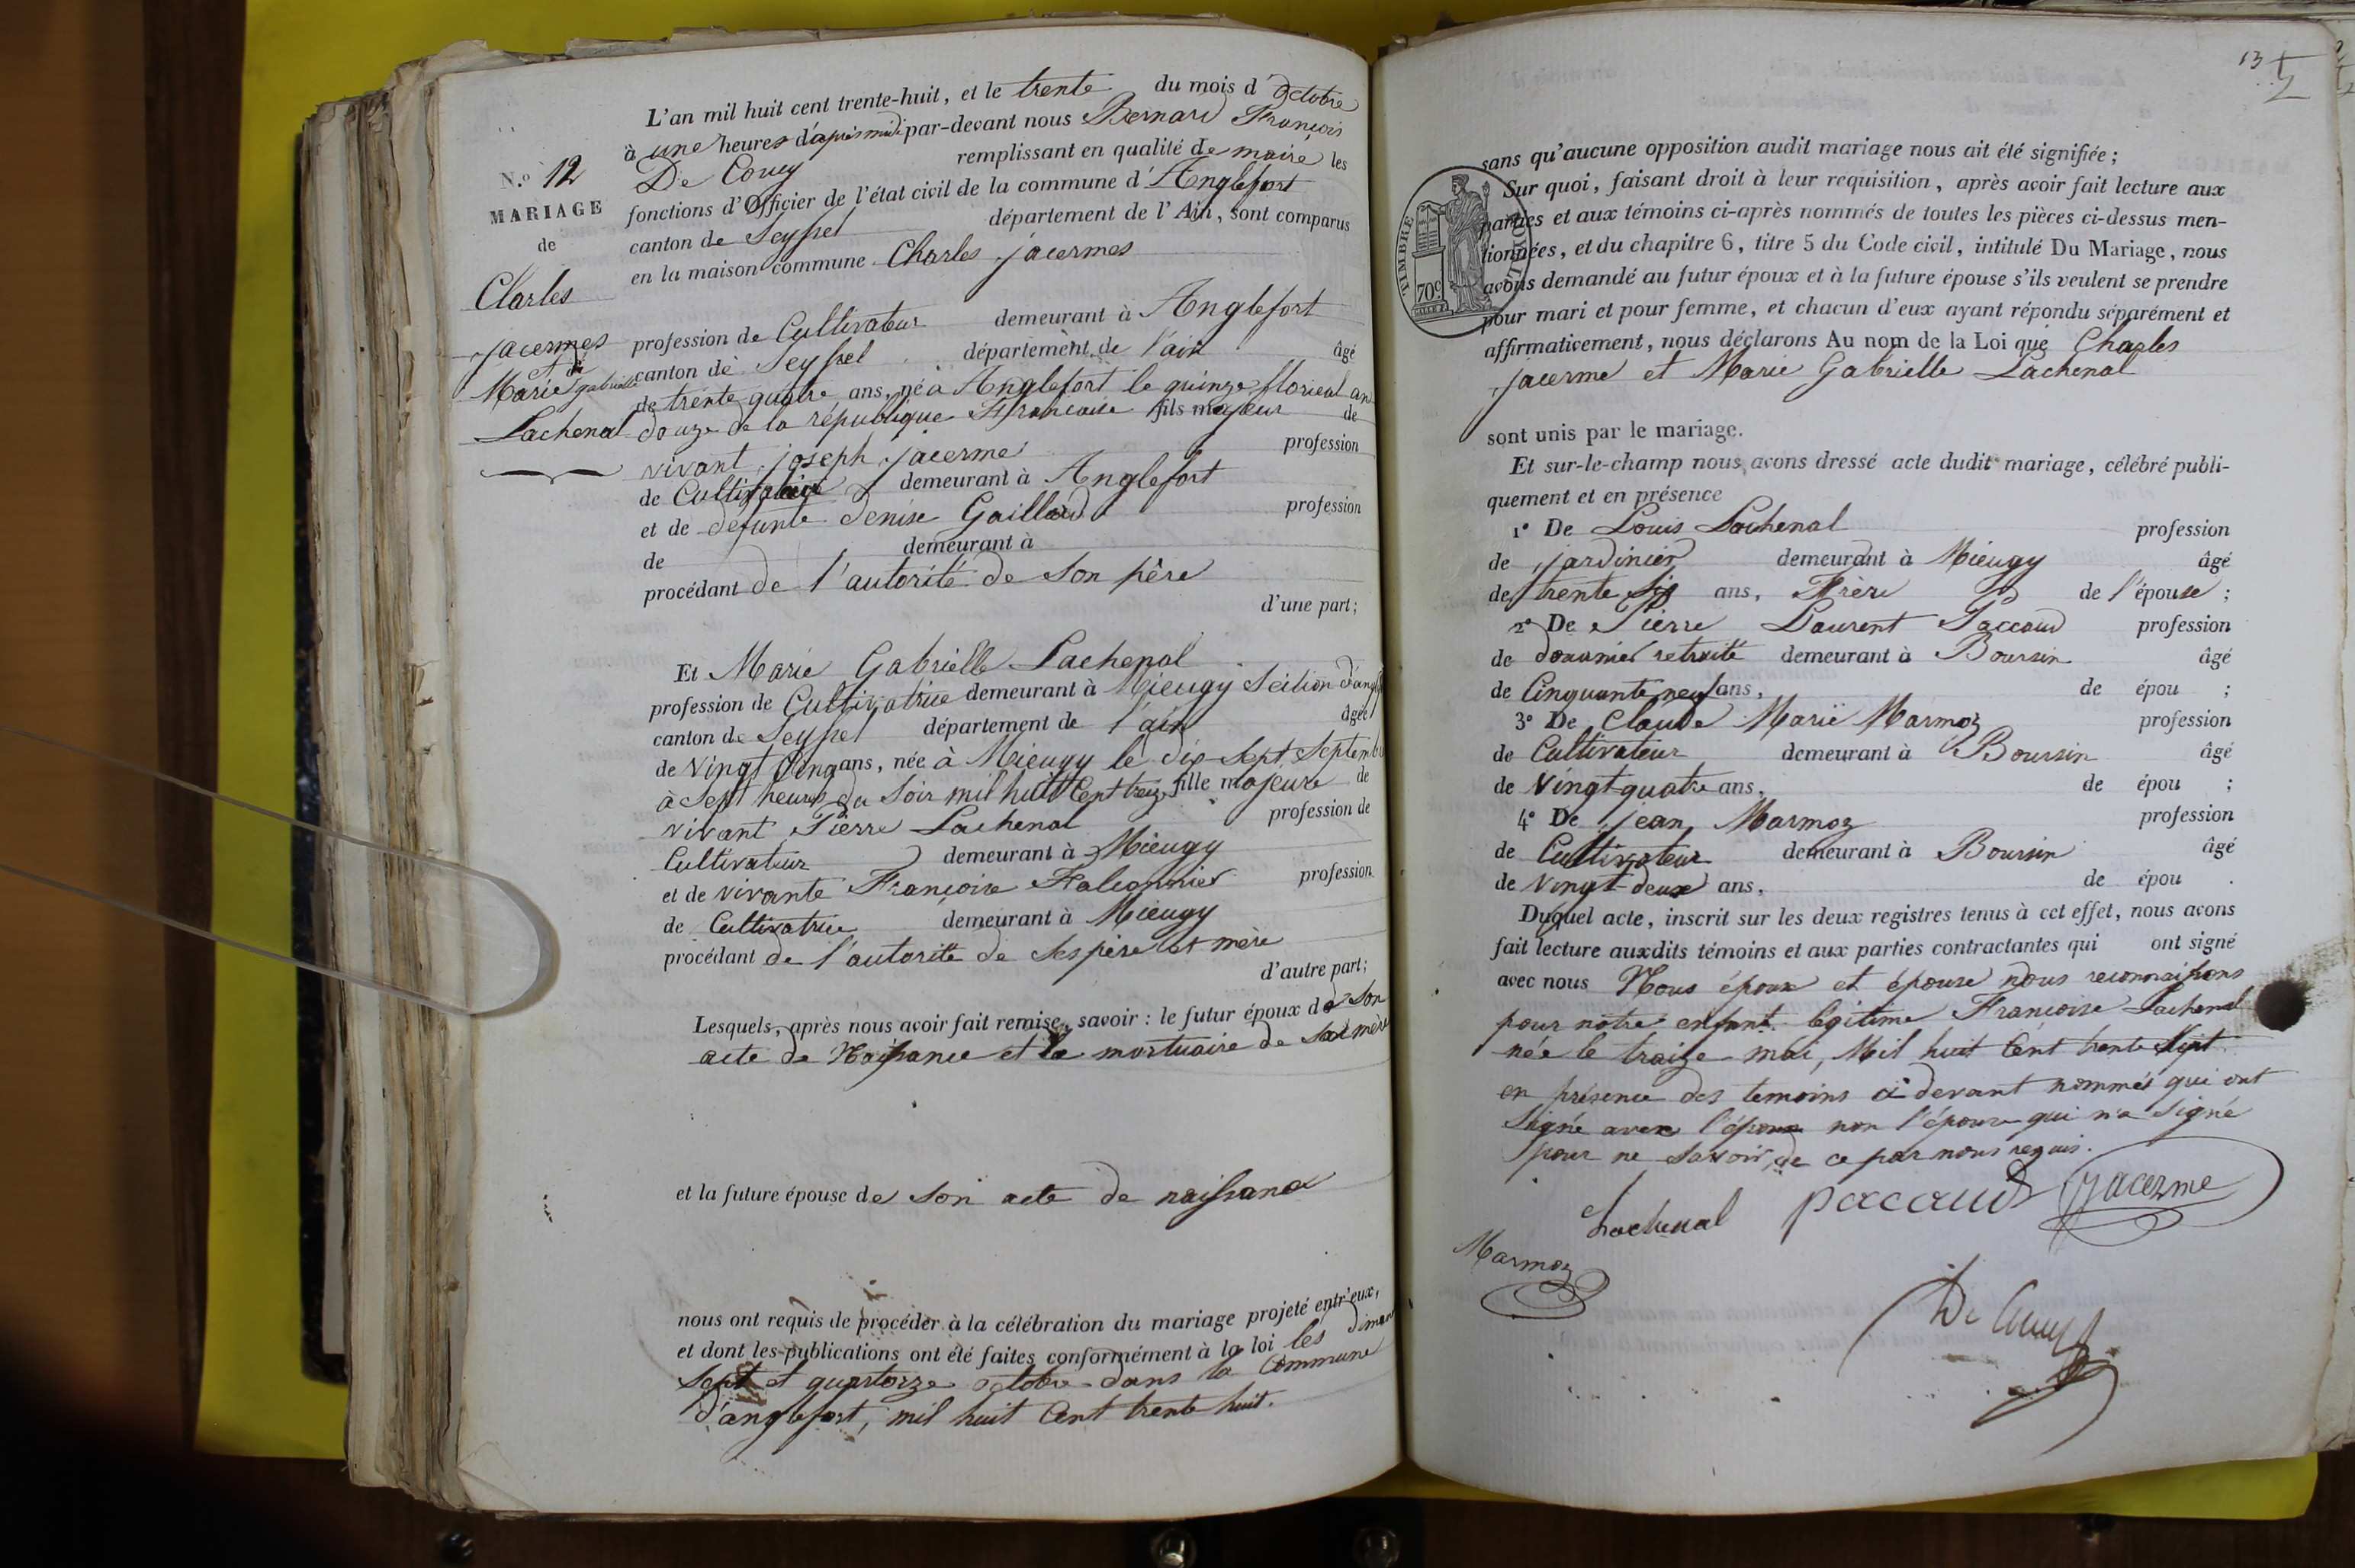 L'an mil huit cent trente-huit, et le trente du mois d'octobre
à une heures d'après midi par-devant nous Bernard François
De Coucy remplissant en qualité de maire les
fonctions d'Officier de l'état civil de la commune d'Anglefort
canton de Seyssel département de l'Ain, sont comparus
en la maison commune Charles jacermes
profession de Cultivateur demeurant à Anglefort
canton de Seyssel département de l'ain âgé
de trente quatre ans, né à Anglefort le quinze floréal an
douze de la république Francaise fils majeur de
vivant joseph jacerme profession
de Cultivateur demeurant à Anglefort
et de défunte denise Gaillard profession
de demeurant à
procédant de l'autorité de son père
d'une part;
N.o 12
MARIAGE
de
Charles
jacermes
et de
Marie gabrielle
Lachenal
Et Marie Gabrielle Lachenal
profession de Cultivatrice demeurant à Mieugy Section d'angl
canton de Seyssel département de l'ain âgée
de vingt Cinq ans, née à Mieugy le dix-Sept Septemb
à sept heures du Soir mil huit Cent treize fille majeure de
vivant Pierre Lachenal profession de
Cultivateur demeurant à Mieugy
et de vivante Françoise Falconnier profession
de Cultivatrice demeurant à Mieugy
procédant de l'autorité de Ses père et mère
d'autre part;
Lesquels, après nous avoir fait remise, savoir : le futur époux de Son
acte de Naissance et le mortuaire de Sa mère
et la future épouse de Son acte de naissance
nous ont requis de procéder à la célébration du mariage projeté entr'eux,
et dont les publications ont été faites conformément à la loi les diman
Sept et quartorze octobre dans la Commune
d'anglefort, mil huit Cent trente huit.
13
sans qu'aucune opposition audit mariage nous ait été signifiée ;
Sur quoi, faisant droit à leur requisition, après avoir fait lecture aux
parties et aux témoins ci-après nommés de toutes les pièces ci-dessus men-
tionnées, et du chapitre 6, titre 5 du Code civil, intitulé Du Mariage, nous
avons demandé au futur époux et à la future épouse s'ils veulent se prendre
pour mari et pour femme, et chacun d'eux ayant répondu séparément et
affirmativement, nous déclarons Au nom de la Loi que Charles
jacerme et Marie Gabrielle Lachenal
TIMBRE
70c
sont unis par le mariage.
Et sur-le-champ nous avons dressé acte dudit mariage, célébré publi-
quement et en présence
1° De Louis Lachenal profession
de jardinier demeurant à Mieugy âgé
de trente Six ans, Frère de l'épouse ;
2° De Pierre Laurent Paccoud profession
de douanier retraité demeurant à Boursin âgé
de Cinquante neuf ans, de épou ;
3° De Claude Marie Marmoz profession
de Cultivateur demeurant à Boursin âgé
de Vingt quatre ans, de épou ;
4° De jean Marmoz profession
de Cultivateur demeurant à Boursin âgé
de Vingt-deux ans, de épou .
Duquel acte, inscrit sur les deux registres tenus à cet effet, nous avons
fait lecture auxdits témoins et aux parties contractantes qui ont signé
avec nous Nous époux et épouse nous reconnaissons
pour notre enfant légitime Francoise Lachenal
née le traize mai, Mil huit Cent trente Sept
en présence des temoins ci devant nommés qui ont
Signé avec l'époux non l'épouse qui n'a Signé
pour ne Savoir, de ce par nous requis.
Lachenal paccaud jacerme
Marmoz
De Coucy